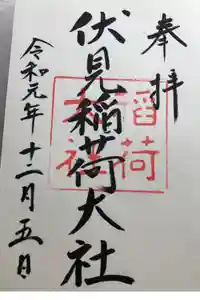 奉拝
伏見稲荷大社
令和元年十二月五日
稲荷
大社